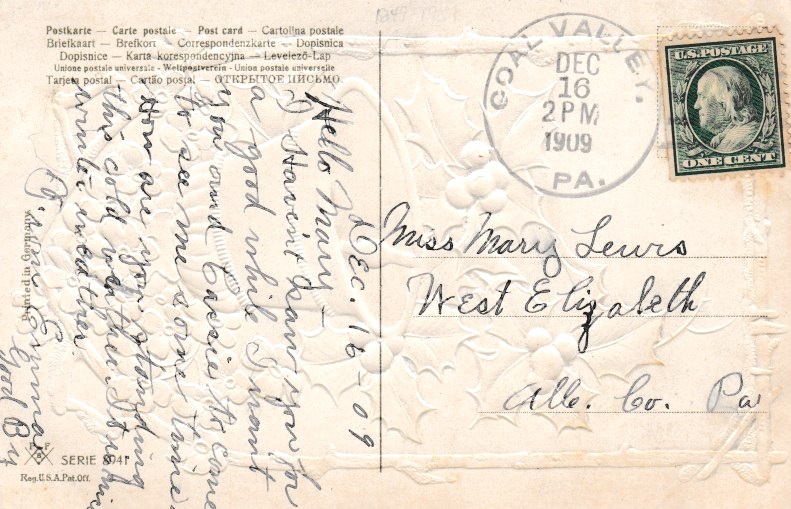 Postkarte — Carte postale — Post card — Cartolina postale
Briefkaart — Brefkort — Correspondenzkarte — Dopisnica
Dopisnice — Karta korespondencyjna — Levelező-Lap
Unione postale universale - Weltpostverein - Union postale universelle
Tarjeta postal — Cartão postal — ОТКРЫТОЕ ПИСЬМО
COAL VALLEY,
DEC
16
2 PM
1909
PA.
U.S. POSTAGE
ONE CENT
Dec. 16-09
Hello Mary
I Haven't saw you for
a good while I want
you and to come
to see me some time
How are you standing
this cold weather
winter weather.
From Emma
Good By
Miss Mary Lewis
West Elizabeth
Alle. Co. Pa
Printed in Germany
SERIE 8941
Reg. U.S.A. Pat. Off.